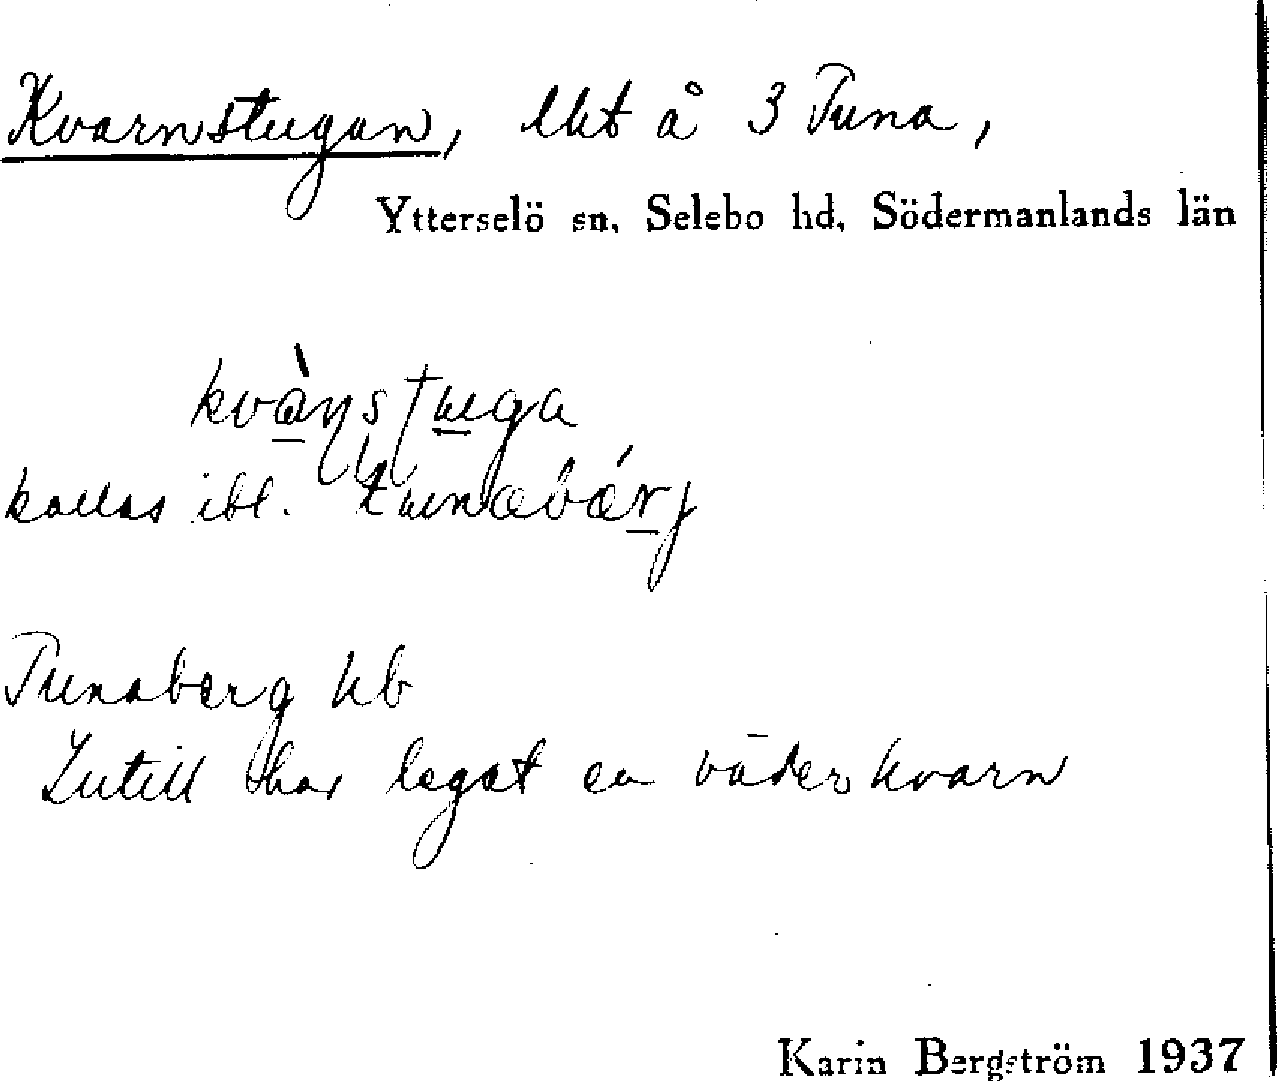 Kvarnstugan, lht å 3 Tuna,
Ytterselö sn, Selebo hd, Södermanlands län
kvàṇsṭuga
kallas ibl. tunabárj
Tunaberg hb
Intill har legat en väderkvarn
Karin Bergström 1937